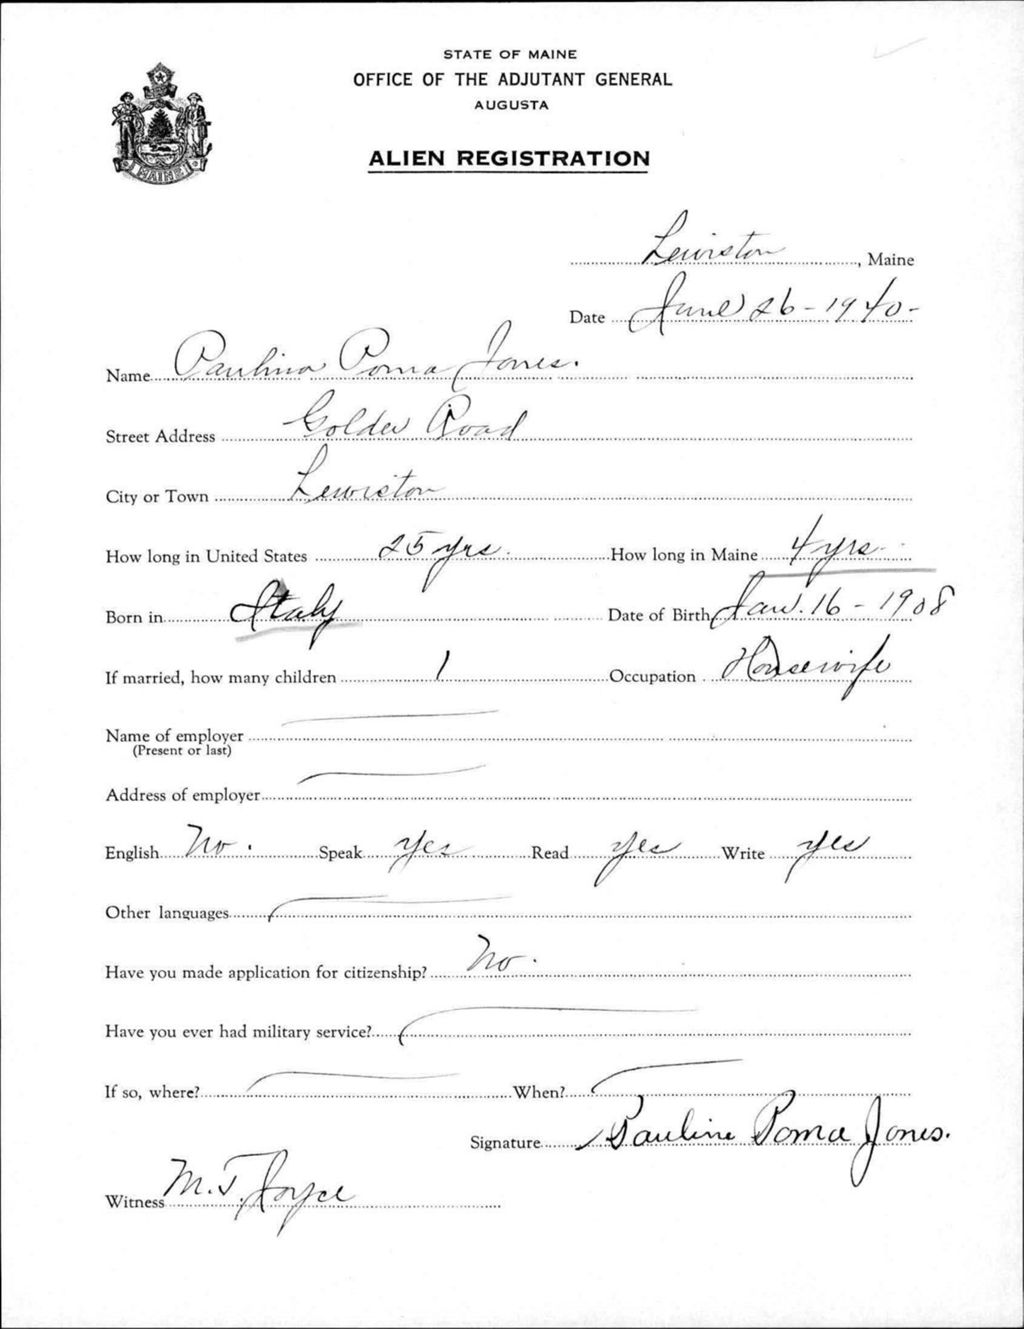 STATE OF MAINE
OFFICE OF THE ADJUTANT GENERAL
AUGUSTA
ALIEN REGISTRATION
MAINE
Lewiston, Maine
Date June 26-1940-
Name Paulina Poma Jones.
Street Address Golder Road
City or Town Lewiston
How long in United States 25 yrs. How long in Maine 4 yrs.
Born in Italy Date of Birth Jan. 16-1908
If married, how many children 1 Occupation Housewife
Name of employer
(Present or last)
Address of employer
English No. Speak Yes Read yes Write yes
Other languages
Have you made application for citizenship? No.
Have you ever had military service?
If so, where? When?
Signature Pauline Poma Jones.
Witness M.T. Joyce